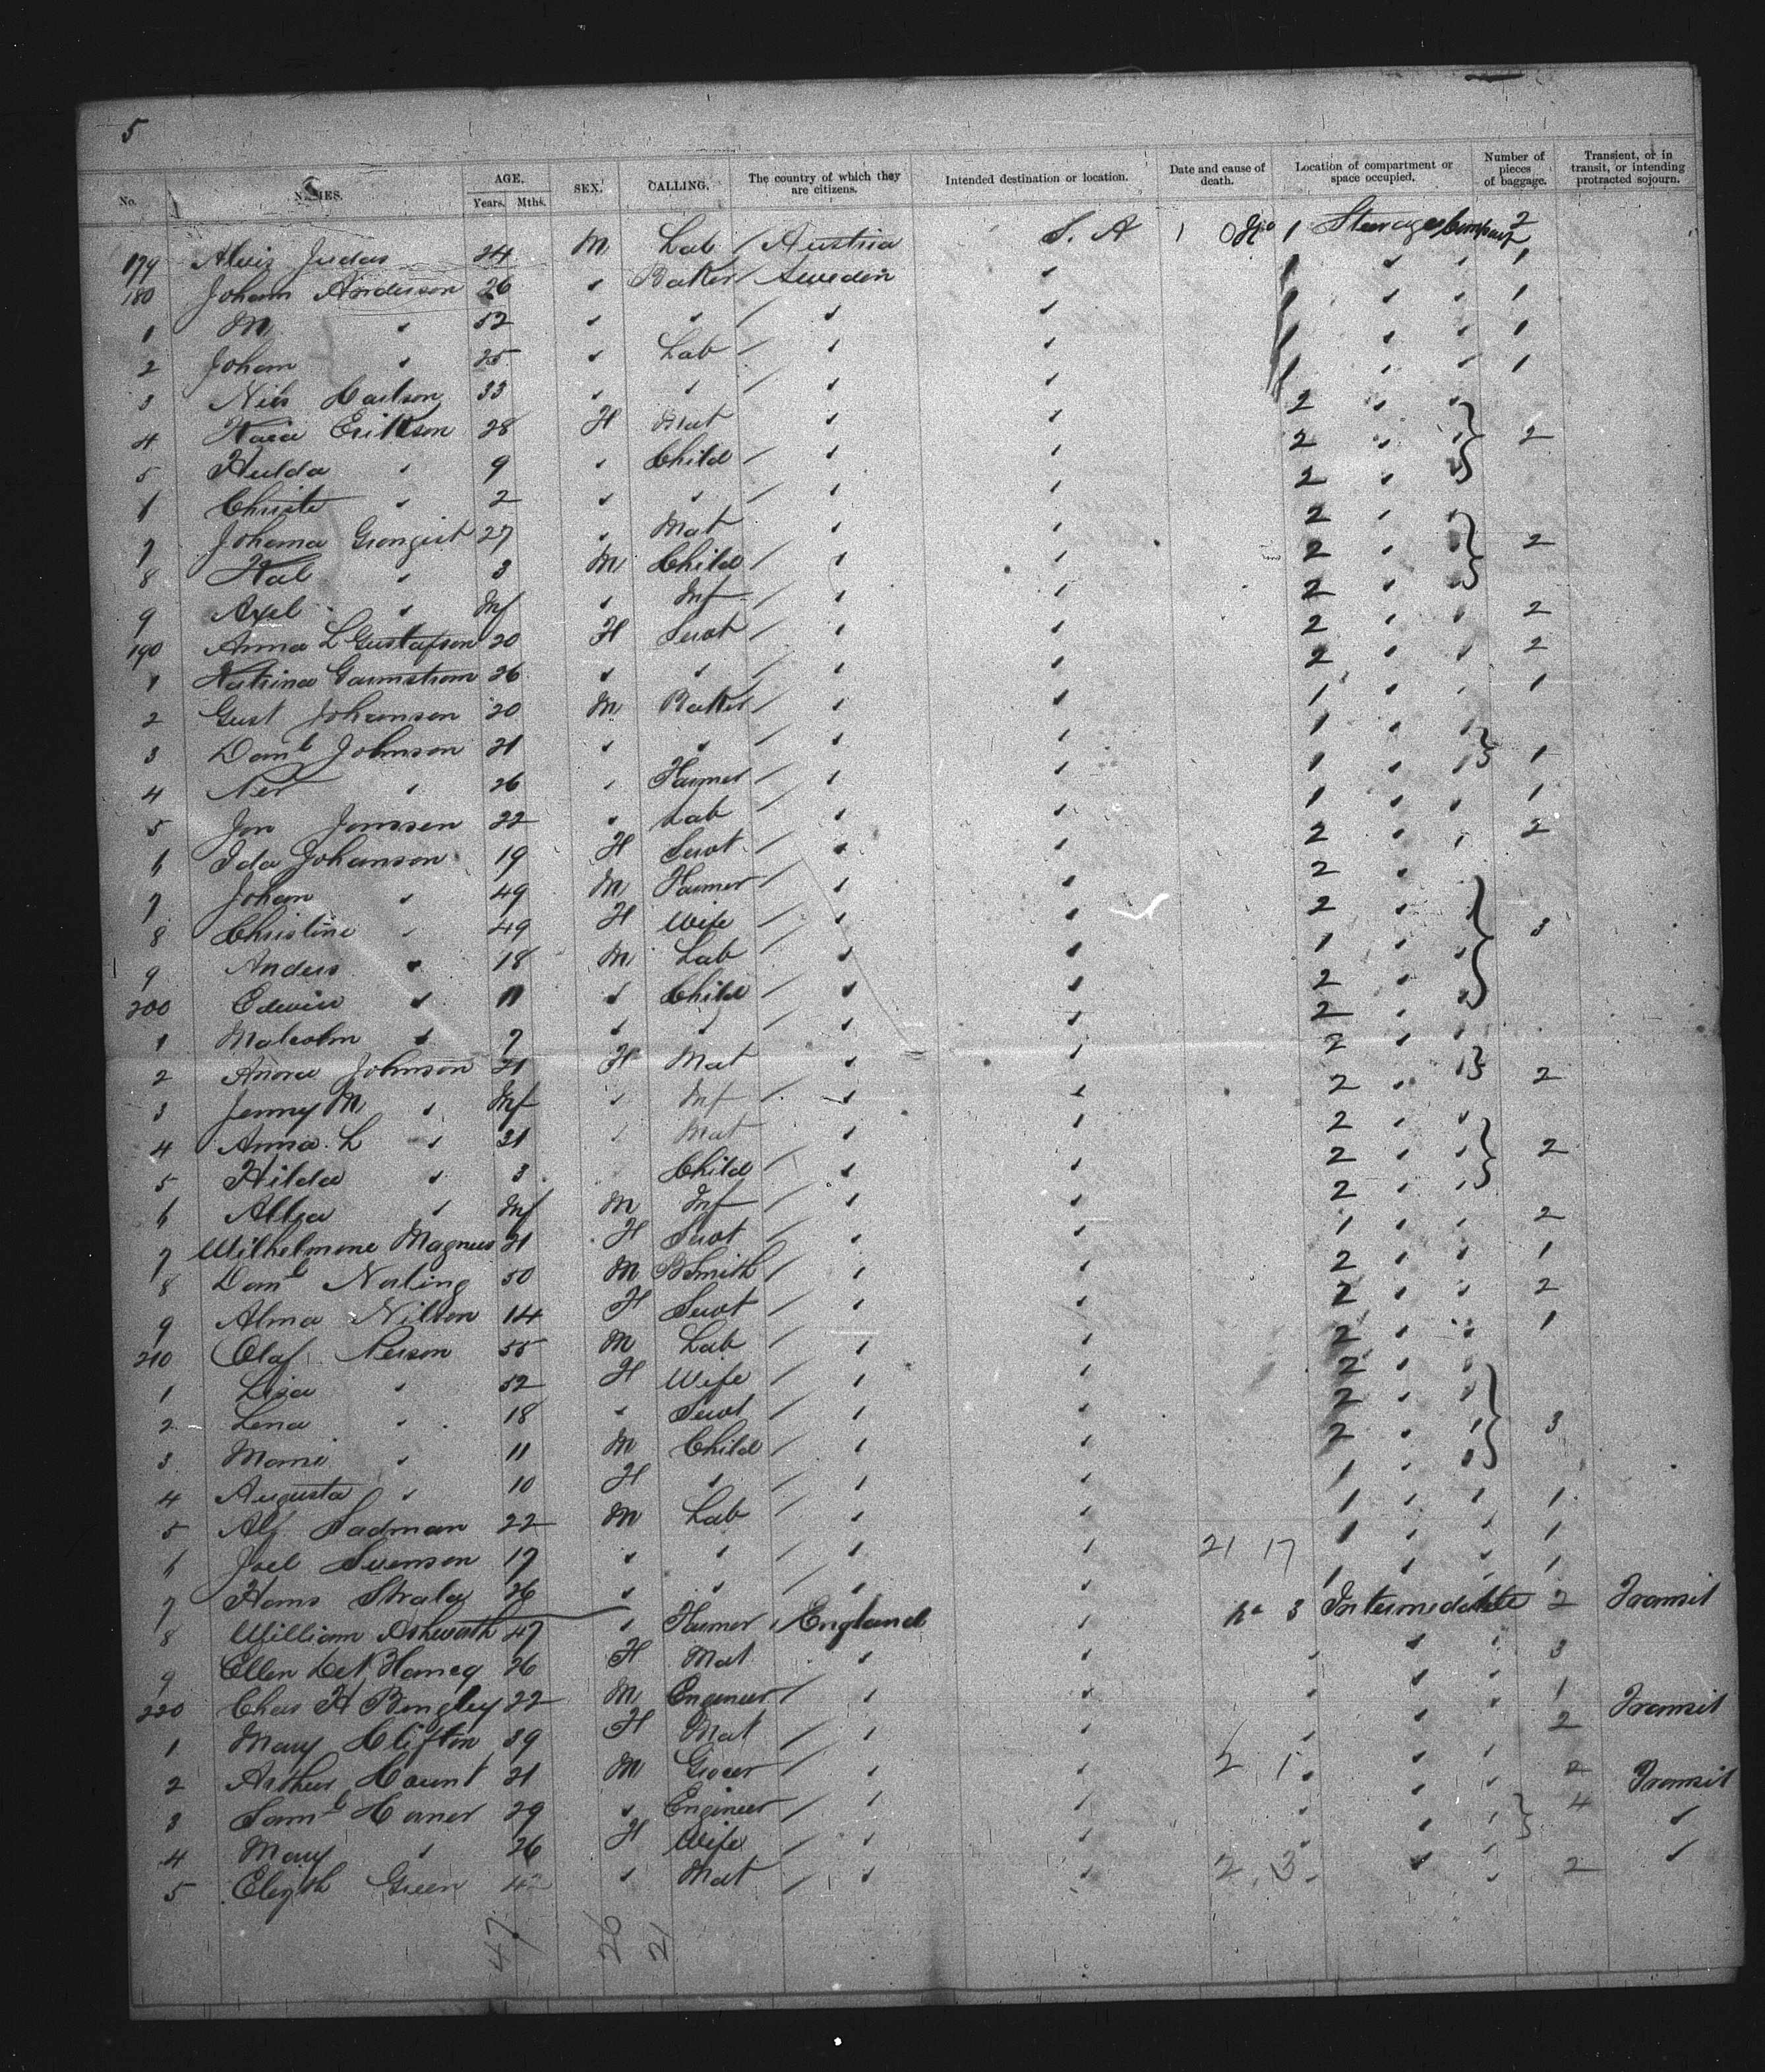 5
No. NAMES. AGE. Years. Mths. SEX. CALLING. The country of which they are citizens. Intended destination or location. Date and cause of death. Location of compartment or space occupied. Number of pieces of baggage. Transient, or in transit, or intending protracted sojourn.
179 Alois Judas 24 M Lab / Austria S. A 1 Steerage 2
180 Johann Anderson 26 " Baker / Sweden " 1 " " 1
1 M " 52 " " / " " 1 " " 1
2 Johan " 25 " Lab / " " 1 " " 1
3 Nils Carlson 33 " " / " " 1 " " 1
4 Erikson 28 F Mat " " 2 " "
5 Hulda " 9 " Child / " " 2 " " 2
6 Christe " 2 " " / " " 2 "
7 Johama Grongist 27 " Mat " " 2 " "
8 Kal " 3 M Child / " " 2 " " 2
9 Axel " Inf " Inf / " " 2 " "
190 Anna L Gustafson 20 F Servt / " " 2 " " 2
1 Katrina 26 " " / " " 2 " " 2
2 Gust Johanson 20 M Baker / " " 1 " " 1
3 Danl Johnson 21 " " / " " 1 " "
4 Per " 26 " Farmer / " " 1 " " 1
5 Jon Jonssen 22 " Lab / " " 1 " " 1
6 Ida Johanson 19 F Servt / " " 2 " " 2
7 Johan " 49 M Farmer / " " 2 "
8 Christine " 49 F Wife / " " 2 " " 3
9 Anders " 18 M Lab / " " 1 " "
200 Edwin " 11 " Child / " " 2 " "
1 Malcolm " 7 " " / " " 2 " "
2 Johnson 21 F Mat " " 2 " "
3 Jenny M " Inf " Inf / " " 2 " 2
4 Anna L " 21 " Mat " " 2 " "
5 Hilda " 3 Child / " " 2 " " 2
6 " Inf M Inf / " " 2 " "
7 Wilhelmine Magnus 21 F Servt / " " 1 " " 2
8 Danl Norling 50 M BSmith / " " 2 " " 1
9 Alma Nilson 14 F Servt / " " 2 " " 2
210 Olaf Peison 55 M Lab / " " 2 " " 1
1 Lisa " 52 F Wife / " " 2 " "
2 Lena " 18 " Servt / " " 2 " "
3 " 11 M Child / " " 2 " " 3
4 Augusta " 10 F " / " " 1 " "
5 Alf Sadman 22 M Lab / " " 1 " " 1
6 Joel Svenson 17 " " / " " 21 17 1 " " 1
7 Hans Strala 26 " " / " " 1 " " 1
8 William Ashworth 47 " Farmer / England " 3 Intermediate 2 Transit
9 Ellen 26 F Mat " " " " " 3
220 Chas H Bingley 22 M Engineer / " " " " " 1
1 Mary Clifton 39 F Mat / " " " " " 2 Transit
2 Arthur 21 M Grocer / " " 2 1 " " 2
3 Saml Horner 29 " Engineer / " " " " " 4 Transit
4 Mary " 26 F Wife / " " " " " "
5 Elizth Green 42 " Mat / " " 2 3 " " 2 "
47 26 21